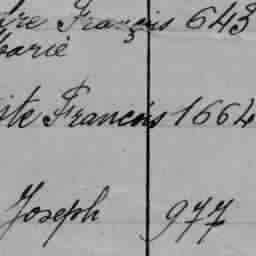 dre François 643
Marie
iste François 1664
Joseph 977